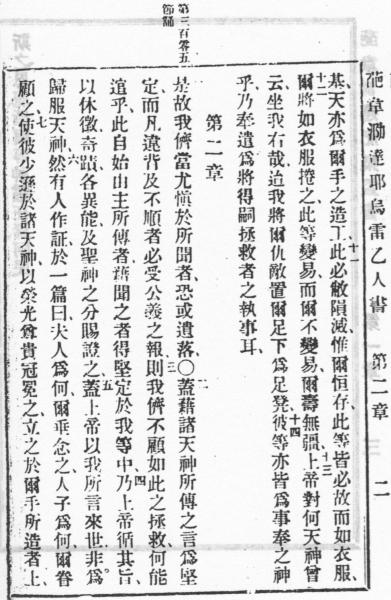 葩韋泐達耶烏雷乙人書 第二章 二
基、天亦爲爾手之造工、十一此必敝隕滅、惟爾恒存、此等皆必故而如衣服、
十二爾將如衣服捲之、此等變易、而爾不變易、爾壽無疆、十三上帝對何天神曾
云、坐我右哉、迨我將爾仇敵置爾足下爲足凳、十四彼等亦皆爲事奉之神
乎、乃奉遣爲將得嗣拯救者之執事耳、
第二章
第三百零五
節誦
是故我儕當尤愼於所聞者、恐或遺落、○二蓋藉諸天神所傳之言爲堅
定、而凡違背及不順者必受公義之報、三則我儕不顧如此之拯救、何能
逭乎、此自始由主所傳者、藉聞之者得堅定於我等中、四乃上帝循其旨
以休徵奇蹟各異能及聖神之分賜證之、五蓋上帝以我所言來世非爲
歸服天神、六然有人作証於一篇曰、夫人爲何、爾垂念之、人子爲何、爾眷
顧之、七使彼少遜於諸天神、以榮光尊貴冠冕之、立之於爾手所造者上、